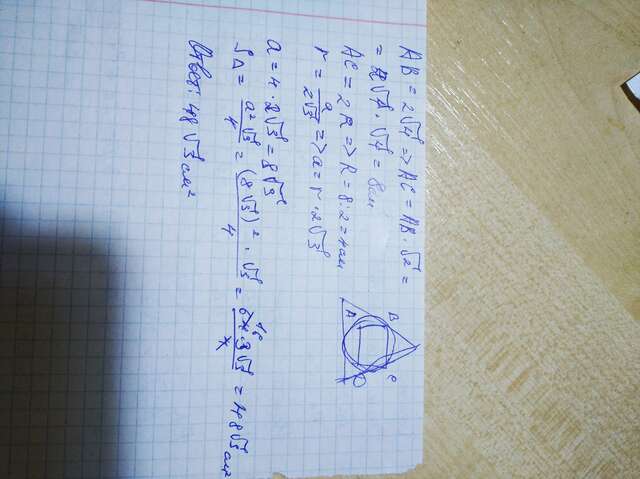 AB = 2√4 => AC = AB · √2 =
= 2√4 · √4 = 8см
AC = 2R => R = 8 : 2 = 4см
r = a/2√3 => a = r · 2√3
a = 4 · 2√3 = 8√3
S△ = a²√3/4 = (8√3)² · √3/4 = 64 · 3√3/4 = 48√3 см²
Ответ: 48√3 см²
A B C D